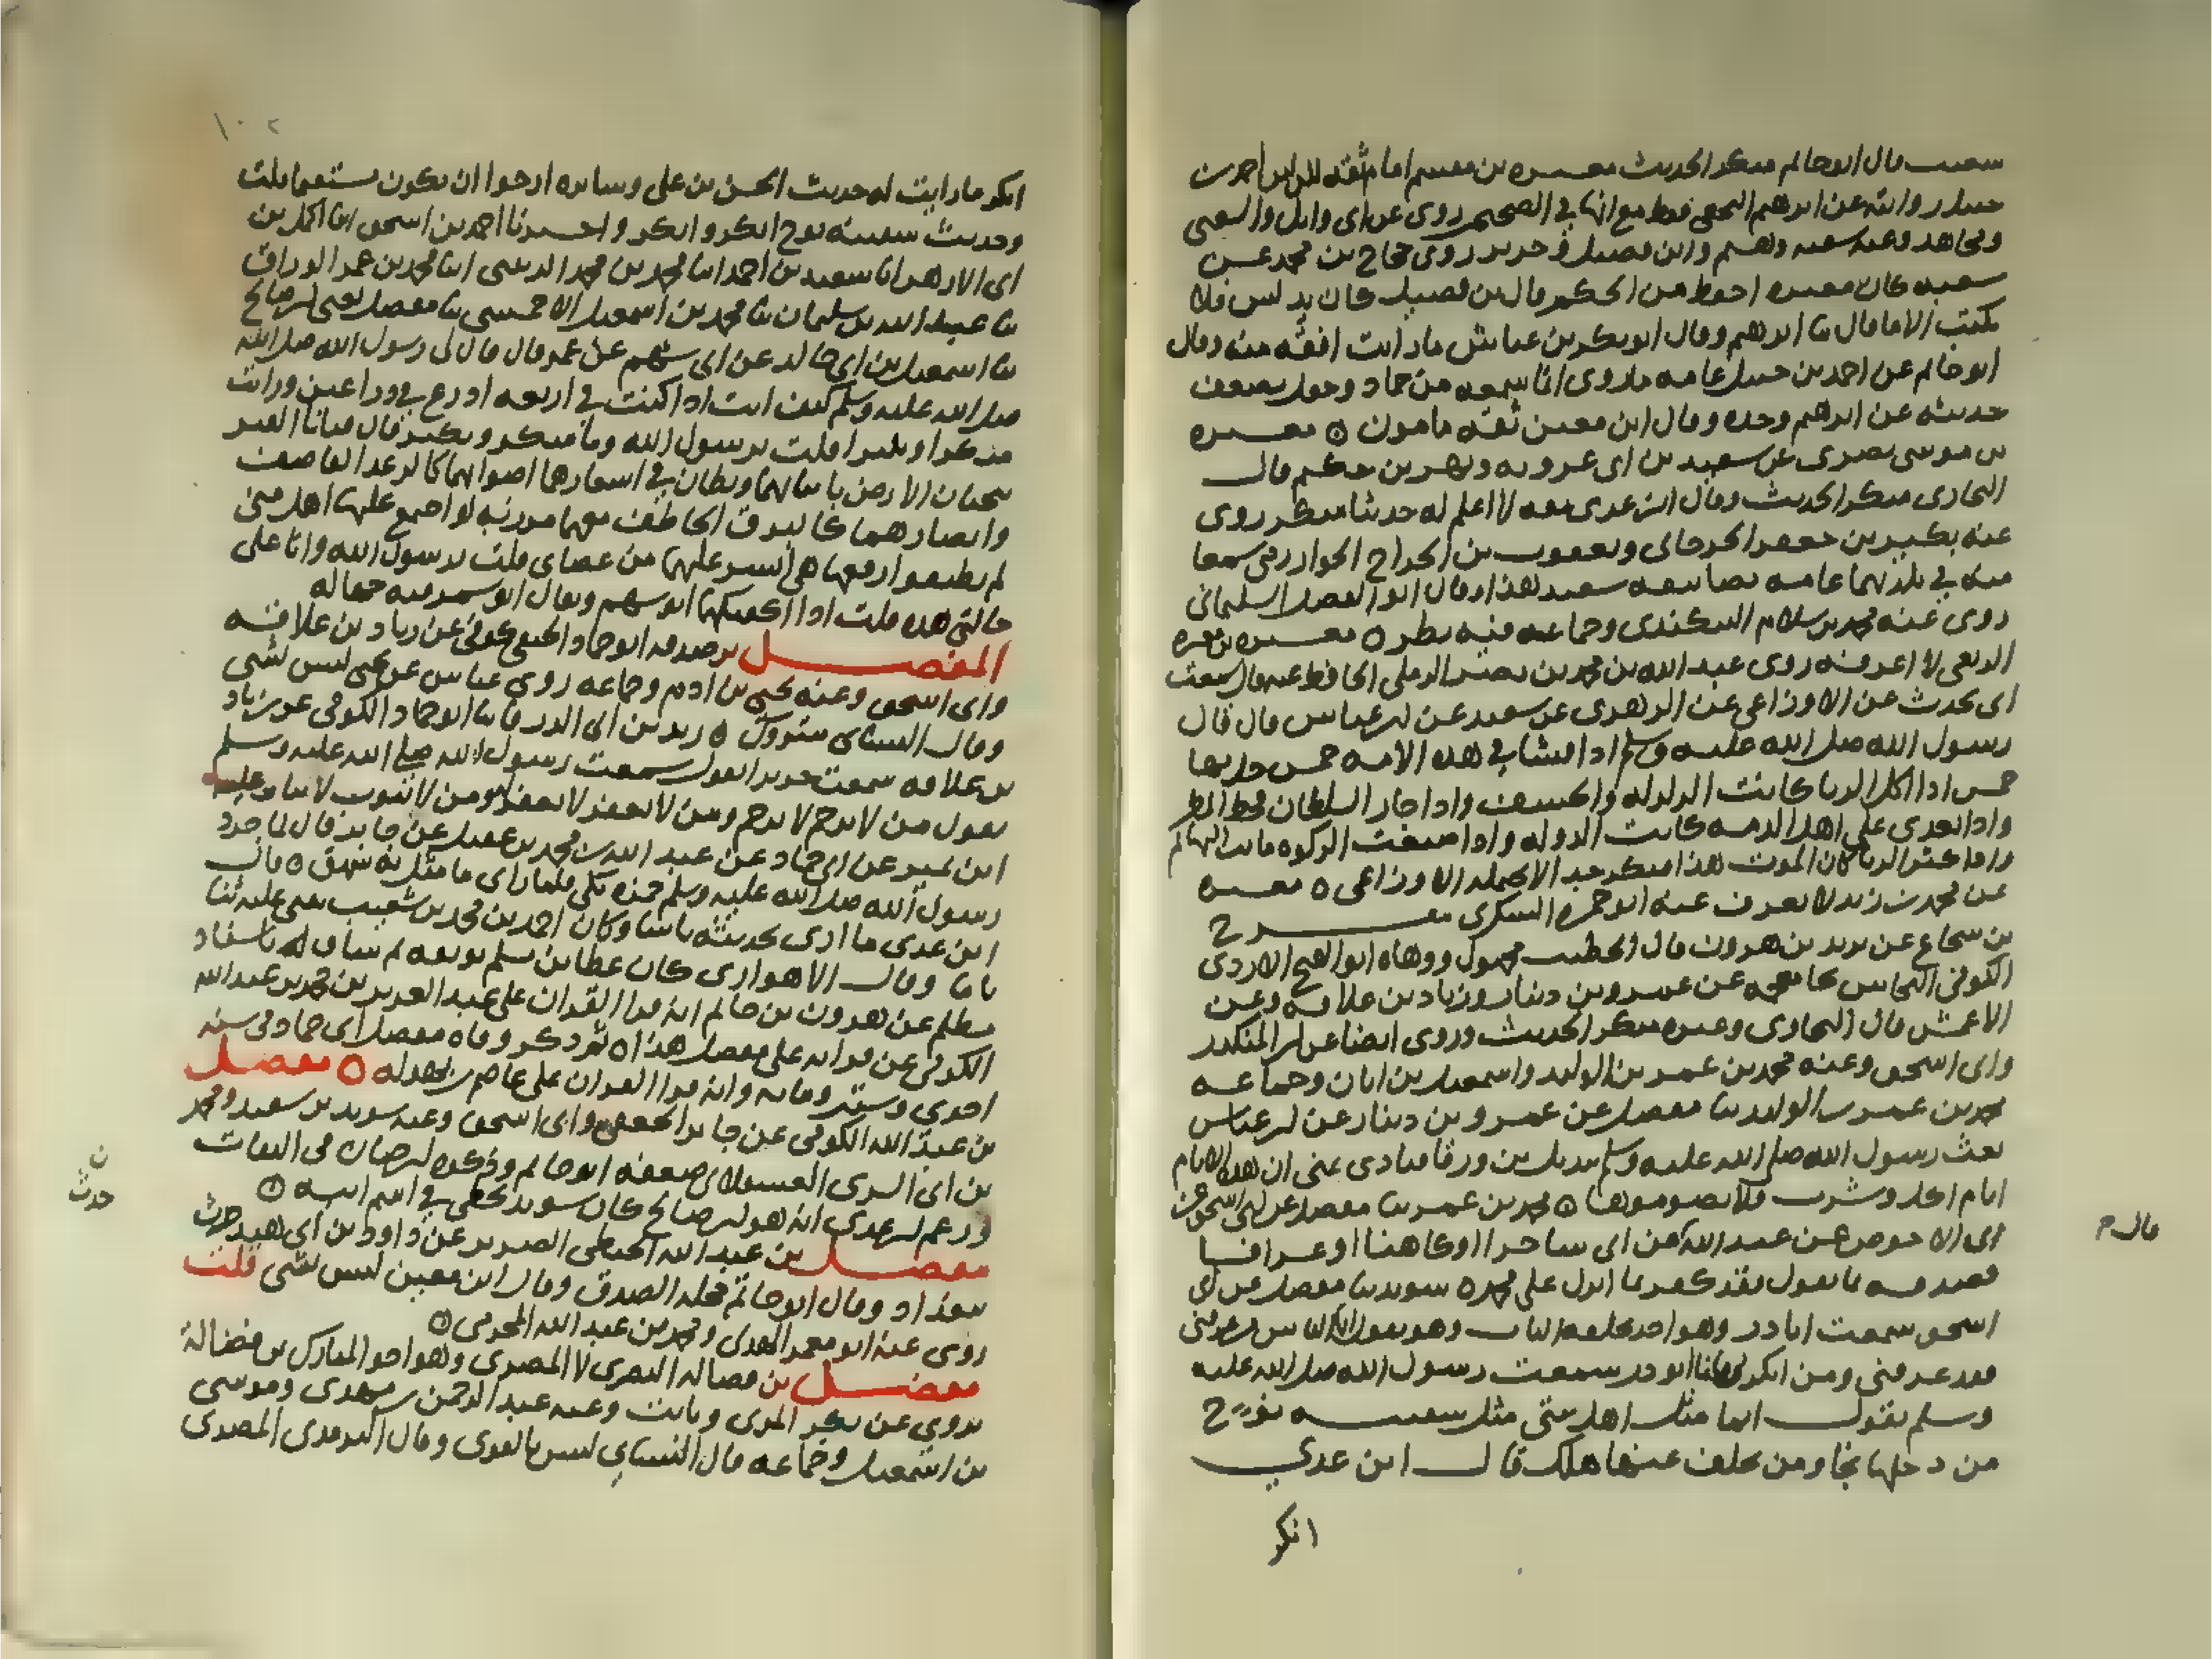 سعيب قال ابو حاتم منكر الحديث مغيره بن مقسم امام ثقه لكن لين احمد بن
حنبل روايته عن ابرهيم النخعي فقط مع انها في الصحيحين روى عن ابي وايل والشعبي
ومجاهد وعنه شعبه وهشيم وابن فضيل وجرير روى حجاج بن محمد عن
شعبه كان مغيره احفظ من الحكم وقال بن فضيل كان يدلس فلا
نكتب الا ما قال ثنا ابرهيم وقال ابو بكر بن عياش ما رايت افقه منه وقال
ابو حاتم عن احمد بن حنبل عامه ما روى انما سمعه من حماد وجعل يضعف
حديثه عن ابرهيم وحده وقال ابن معين ثقه مامون ۞ مغيره
بن موسى بصرى عن سعيد بن ابي عروبه وبهز بن حكيم قال
البخاري منكر الحديث وقال ابن عدي ثقه لا اعلم له حديثا منكر روى
عنه بكير بن جعفر الجرجاني ويعقوب بن الجراح الخوارزمي سمعا
منه في بلدهما عامه تصانيفه سعيد هذا وقال ابو الفضل السليماني
روى عنه محمد بن سلام البيكندي وجماعه فيه نظر ۞ مغيره
لا اعرفه روى عبد الله بن محمد بن نصر الرملي الحافظ عنه قال سمعت
ابي يحدث عن الاوزاعي عن الزهري عن سعيد عن ابن عباس قال قال
رسول الله صلى الله عليه وسلم اذا فشا في هذه الامه خمس حل بها
خمس اذا اكل الربا كانت الزلزله والخسف واذا جار السلطان قحط المطر
واذا تعدي على اهل الذمه كانت الدوله واذا ضيعت الزكوه ماتت البهائم
واذا كثر الزنا كان الموت هذا منكر جدا لا يحتمله الاوزاعي ۞ مغيره
عن محمد بن زيد لا يعرف عنه ابو حمزه السكري مفرج
بن شجاع عن يزيد بن هرون قال الخطيب مجهول ووهاه ابو الفتح الازدي
الكوفي النحاس بخا معجمه عن عمرو بن دينار وزياد بن علاقه وعن
الاعمش قال البخاري وغيره منكر الحديث وروى ايضا عن ابن المنكدر
وابي اسحق وعنه محمد بن عمر بن الوليد واسمعيل بن ابان وجماعه
محمد بن عمر بن الوليد ثنا مفضل عن عمرو بن دينار عن ابن عباس
بعث رسول الله صلى الله عليه وسلم بديل بن ورقا فنادى بمنى ان هذه الايام
ايام اكل وشرب فلا تصوموها ۞ محمد بن عمر ثنا مفضل عن ابي اسحق عن
ابي الاحوص عن عبد الله من اتى ساحرا او كاهنا او عرافا
فصدقه بما يقول فقد كفر بما انزل على محمد ۞ سويد ثنا مفضل عن ابي
اسحق سمعت ابا ذر وهو اخذ بحلقه الباب وهو يقول يا ايها الناس من عرفني
فقد عرفني ومن انكرني فانا ابو ذر سمعت رسول الله صلى الله عليه
وسلم يقول انما مثل اهل بيتي مثل سفينه نوح
من دخلها نجا ومن تخلف عنها هلك قال ابن عدي
انكر
قال م
١٠٢
انكر ما رايت له حديث الحسن بن علي وسايره ارجوا ان يكون مستقيما قلت
وحديث سفينه نوح انكر وانكر واخبرنا احمد بن اسحق انا اكمل بن
ابي الازهر انا سعيد بن احمد انا محمد بن محمد الزينبي انا محمد بن عمر الوراق
ثنا عبد الله بن سليمان ثنا محمد بن اسمعيل الاحمسي ثنا مفضل يعني ابن صالح
ثنا اسمعيل بن ابي خالد عن ابي سهم عن عمر قال قال لي رسول الله صلى الله
صلى الله عليه وسلم كيف انت اذا كنت في اربعه اذرع في ذراعين ورايت
منكرا ونكيرا قلت يرسول الله وما منكر ونكير قال فتانا القبر
يبحثان الارض بانيابهما ويطان في اشعارها اصواتهما كالرعد القاصف
وابصارهما كالبرق الخاطف معهما مرزبه لو اجتمع عليها اهل منى
لم يطيقوا رفعها هي ايسر عليهما من عصاي قلت يرسول الله وانا على
حالتي هذه قلت اذا اكفيكهما ابو سهم ويقال ابو شمر فيه جهاله
المفضل بن صدقه ابو حماد الحنفي كوفي عن زياد بن علاقه
وابي اسحق وعنه يحيى بن ادم وجماعه روى عباس عن يحيى ليس بشي
وقال النسائي متروك ۞ يزيد بن ابي الزرقا ثنا ابو حماد الكوفي عن زياد
بن علاقه سمعت جريرا يقول سمعت رسول الله صلى الله عليه وسلم
يقول من لا يرحم لا يرحم ومن لا يغفر لا يغفر له ومن لا يتوب لا يتاب عليه
ابن نمير عن ابي حماد عن عبد الله بن محمد بن عقيل عن جابر قال لما جرد
رسول الله صلى الله عليه وسلم حمزه بكى فلما راى ما مثل به شهق ۞ قال
ابن عدي ما ارى بحديثه باسا وكان احمد بن محمد بن شعيب يثني عليه ثنا
تاما وقال الاهوازي كان عطا بن مسلم يوثقه ثم ساق له باسناد
مظلم عن هرون بن حاتم انه قرا القران على عبد العزيز بن محمد بن عبد الله
الكوفي عن قراته على مفضل هذا ۞ ثم ذكر وفاه مفضل ابي حماد في سنه
احدى وستين ومايه وانه قرا القران على عاصم بن بهدله ۞ مفضل
بن عبد الله الكوفي عن جابر الجعفي وابي اسحق وعنه سويد بن سعيد ومحمد
بن ابي السري العسقلاني ضعفه ابو حاتم وذكره ابن حبان في الثقات
وزعم ابن عدي انه هو ابن صالح كان سويد يخطي في اسم ابيه ۞
مفضل بن عبد الله الحبطي الضرير عن داود بن ابي هند حدث
ببغداد وقال ابو حاتم محله الصدق وقال ابن معين ليس بشي قلت
روى عنه ابو معمر الهذلي ومحمد بن عبد الله المخرمي ۞
مفضل بن فضاله البصري لا المصري وهو اخو المبارك بن فضالة
يروي عن بكر المزني وثابت وعنه عبد الرحمن بن مهدي وموسى
بن اسمعيل وجماعه قال النسائي ليس بالقوي وقال الترمذي المصري
ن
حدث